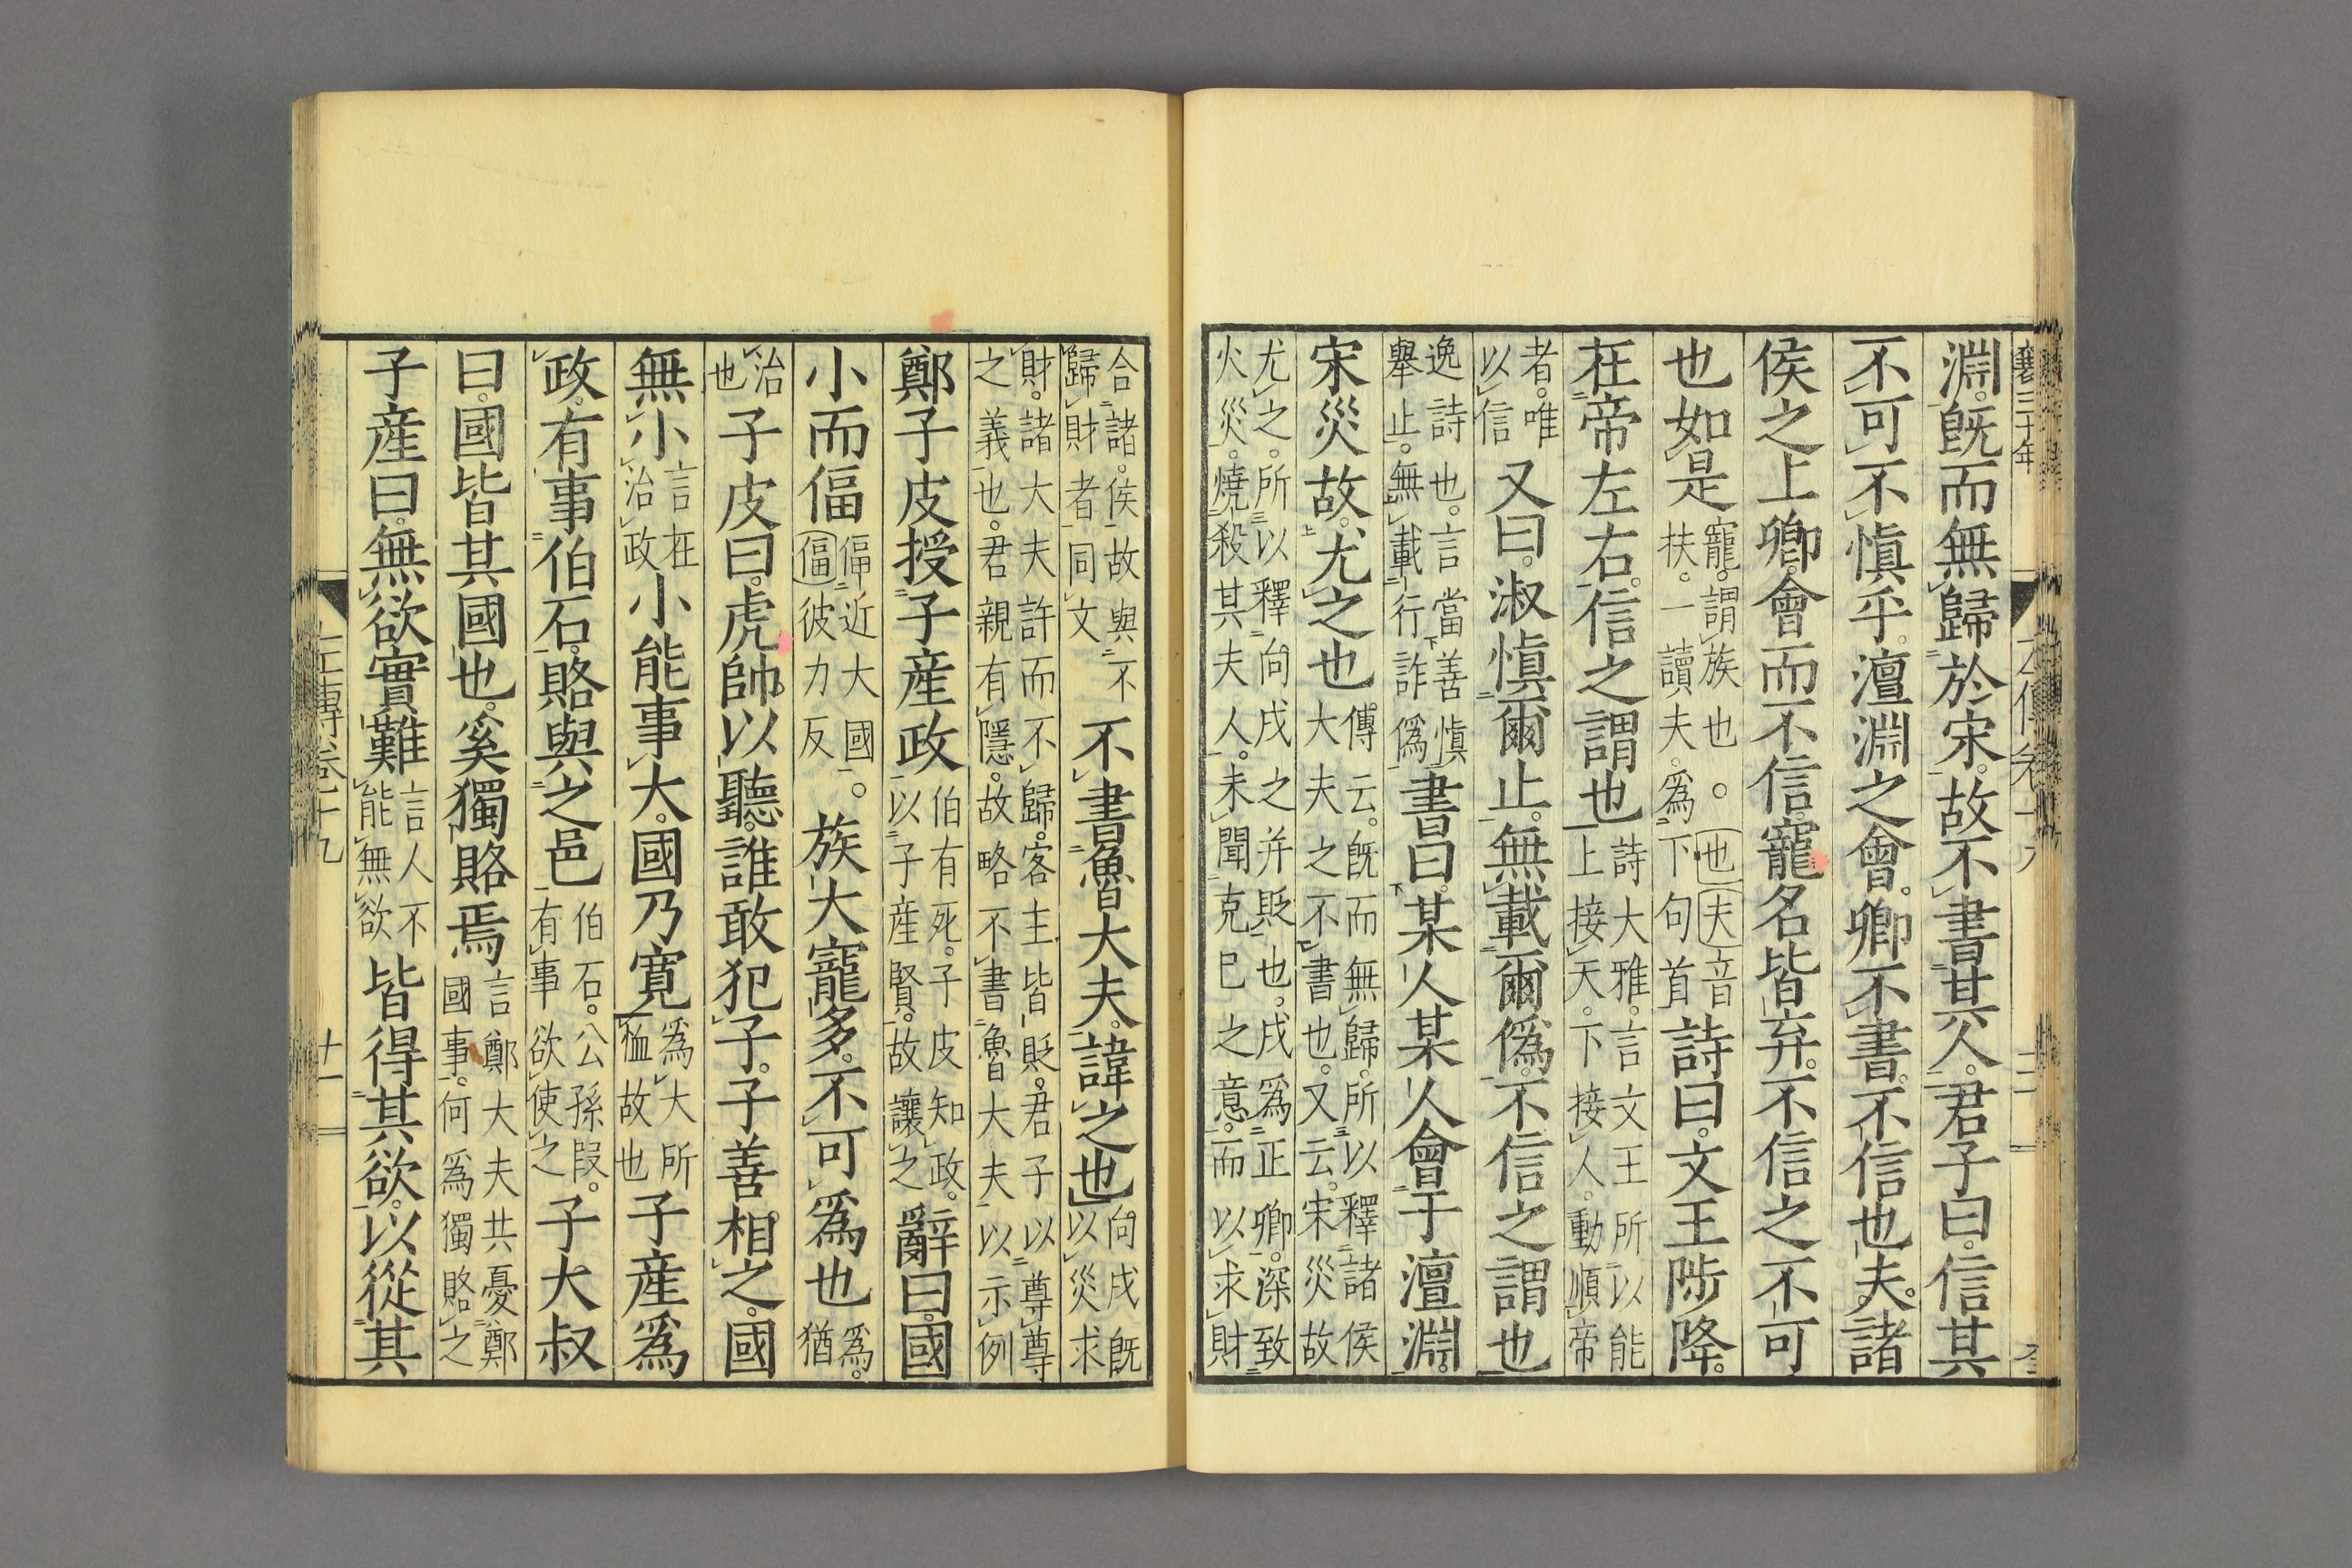 襄三十年
淵。既而無歸於宋。故不書其人。君子曰。信其
不可不愼乎。澶淵之會。卿不書。不信也夫。諸
侯之上卿。會而不信。寵名皆弃。不信之不可
也如是寵。謂族也。○也夫音扶。一讀夫。爲下句首詩曰。文王陟降。
在帝左右。信之謂也詩大雅。言文王所以能上接天。下接人。動順帝
者。唯以信又曰。淑愼爾止。無載爾僞。不信之謂也
逸詩也。言當善愼舉止。無載行詐僞書曰。某人某人會于澶淵。
宋災故。尤之也傳云。既而無歸。所以釋諸侯大夫之不書也。又云。宋災故
尤之。所以釋向戌之并貶也。戌爲正卿。深致火災。燒殺其夫人。未聞克己之意。而以求財
合諸侯。故與不歸財者同文不書魯大夫。諱之也向戌既以災求
財。諸大夫許而不歸。客主皆貶。君子以尊尊之義也。君親有隱。故略不書魯大夫以示例
鄭子皮授子産政伯有死。子皮知政。以子産賢。故讓之辭曰。國
小而偪偪近大國。○偪彼力反族大寵多。不可爲也爲。猶
治也子皮曰。虎帥以聽。誰敢犯子。子善相之。國
無小言在治政小能事大。國乃寬爲大所恤故也子産爲
政。有事伯石。賂與之邑伯石。公孫段。有事欲使之子大叔
曰。國皆其國也。奚獨賂焉言鄭大夫共憂鄭國事。何爲獨賂之
子産曰。無欲實難言人不能無欲皆得其欲。以從其
左傳卷十九 十一